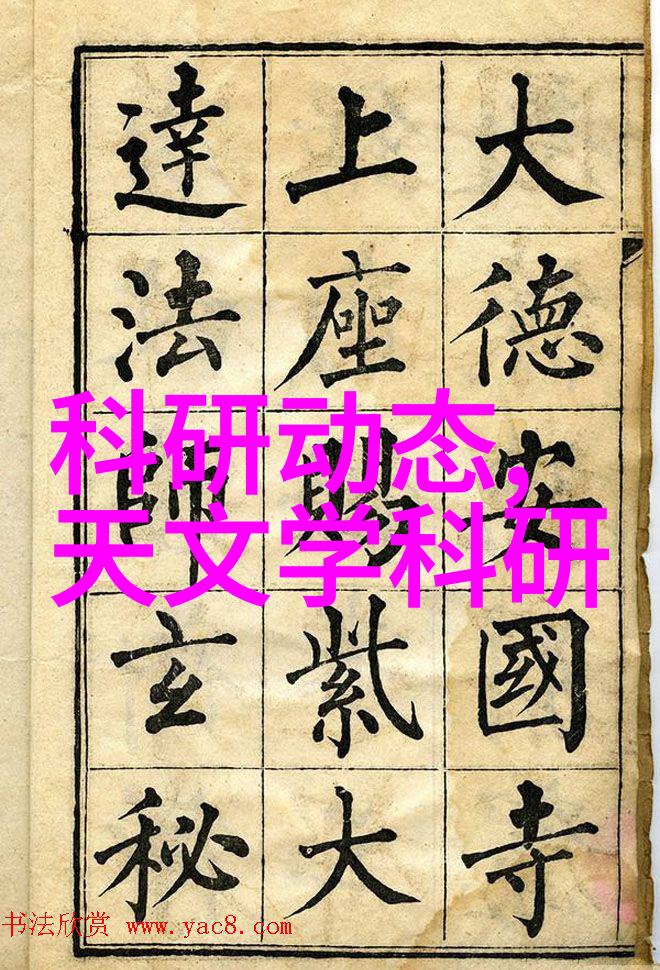 大德安國寺
上座賜紫大
達法師玄秘
科研动态,
天文学科研
书法欣赏 www.yac8.com